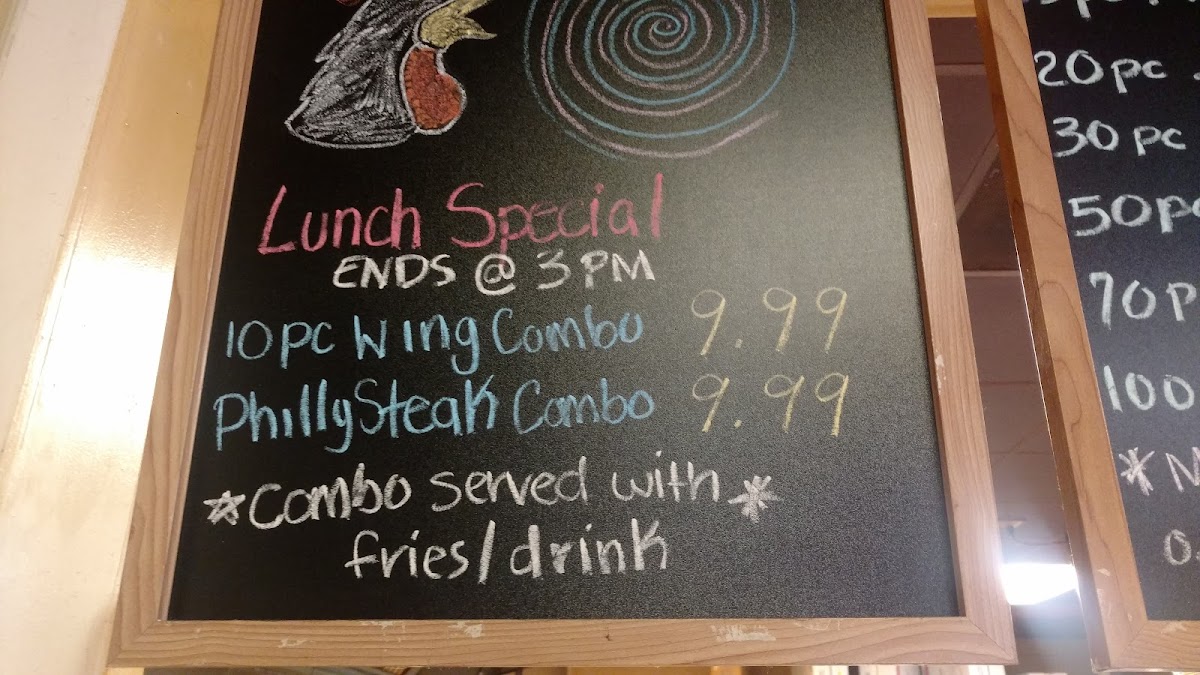 Lunch Special
ENDS @ 3 PM
10 PC Wing Combo 9.99
Philly Steak Combo 9.99
*Combo served with*
fries/drink
20 pc
30 pc
50 pc
70 p
100
* M